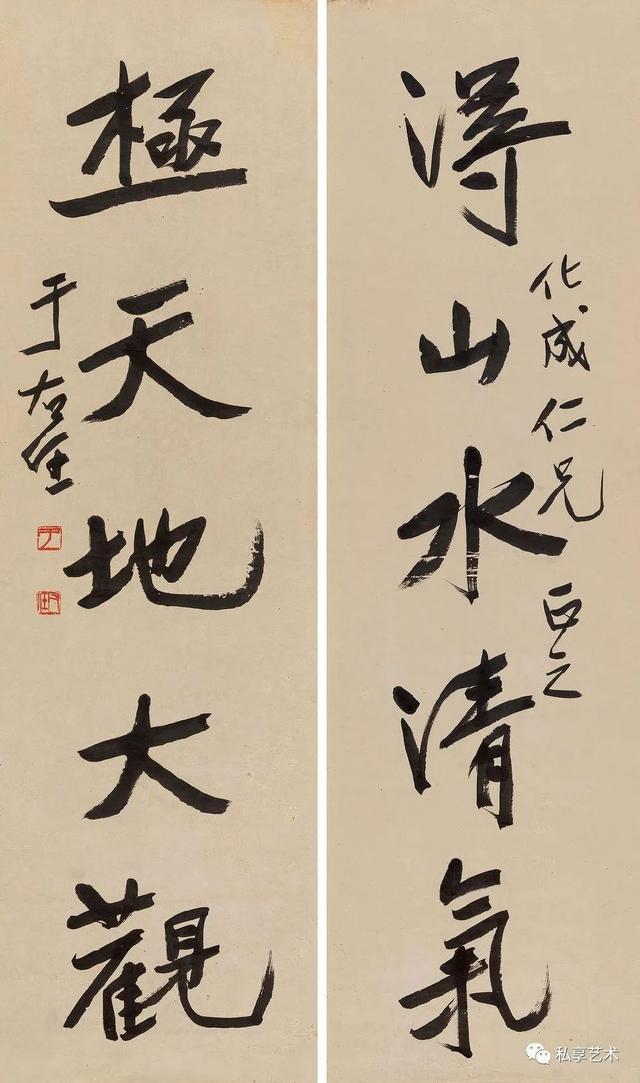 得山水清氣
化成仁兄正之
極天地大觀
于右任
私享艺术